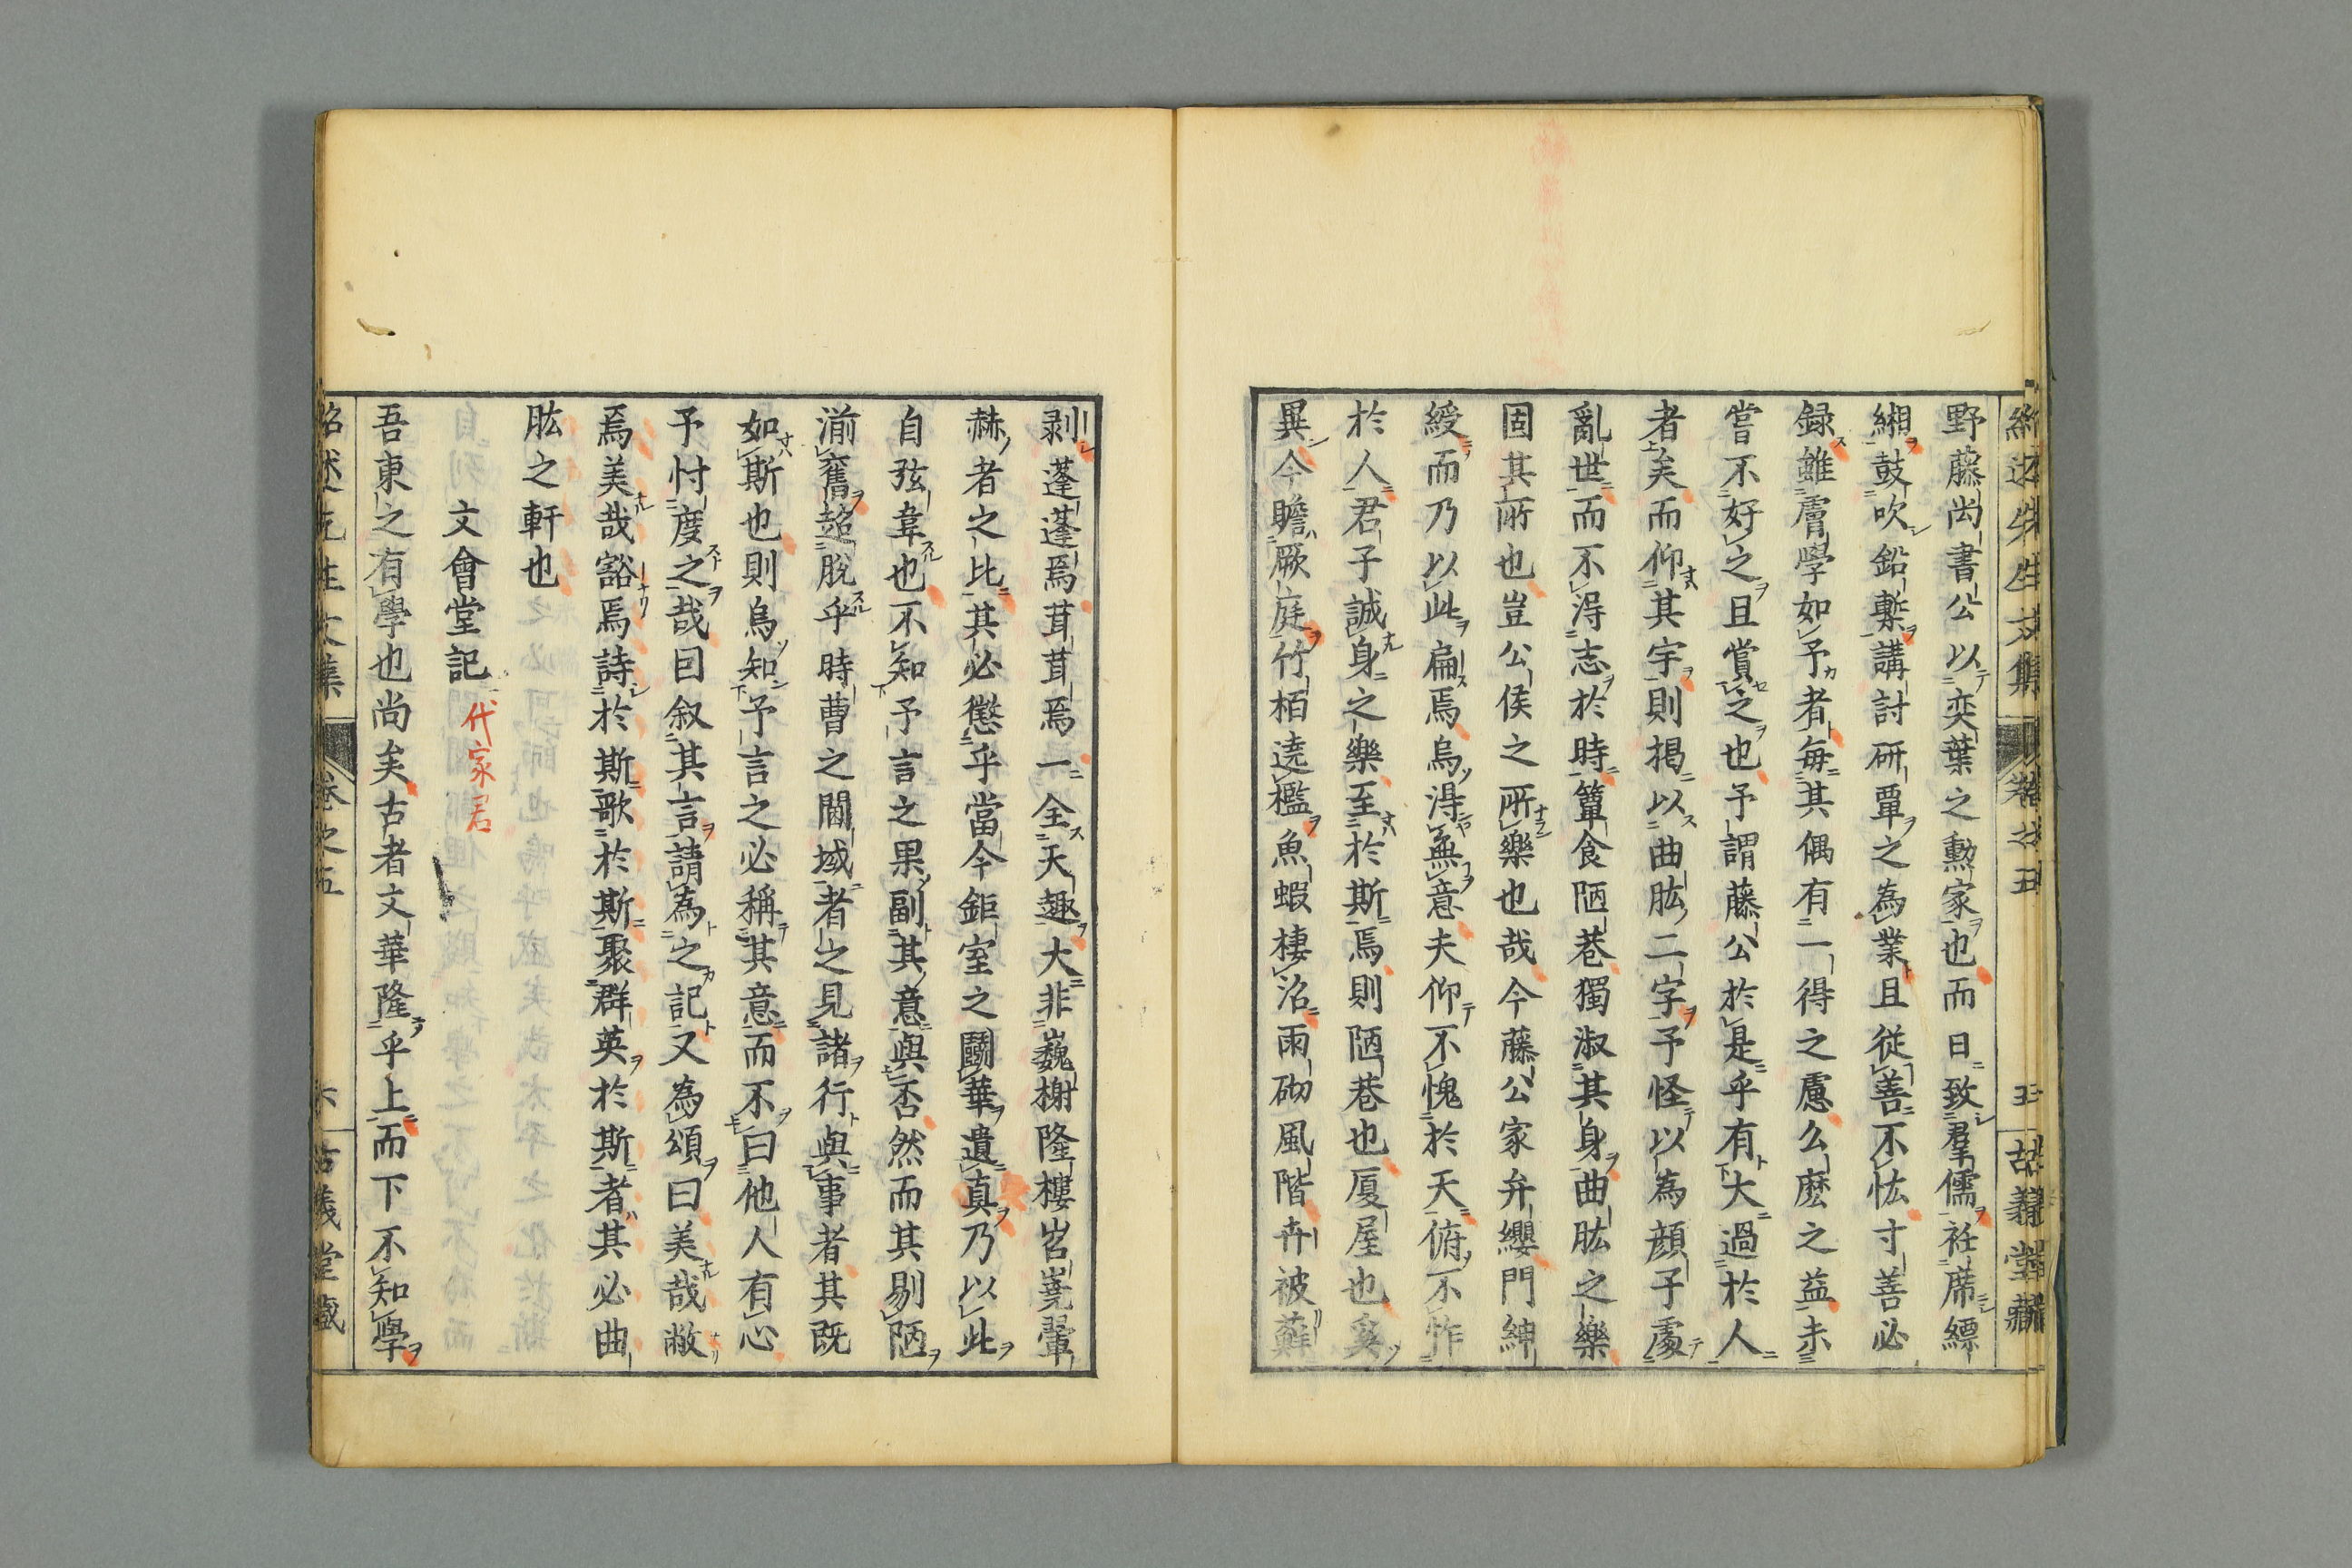 紹述先生文集 卷之五 五 古義堂藏
野藤尚書公以奕葉之勲家也而日致羣儒衽席縹
緗鼓吹鉛槧講討研覃之為業且従善不怯寸善必
録雖膚學如予者毎其偶有一得之慮么麼之益未
嘗不好之且賞之也予謂藤公於是乎有大過於人
者矣而仰其宇則掲以曲肱二字予怪以為顔子處
亂世而不得志於時簞食陋巷獨淑其身曲肱之樂
固其所也豈公侯之所樂也哉今藤公家弁纓門紳
綬而乃以此扁焉烏得無意夫仰不愧於天俯不怍
於人君子誠身之樂至於斯焉則陋巷也厦屋也奚
異今瞻厥庭竹栢遶檻魚蝦棲沼雨砌風階卉被蘚
剥蓬蓬焉茸茸焉一全天趣大非巍榭隆樓岧嶤翬
赫者之比其必懲乎當今鉅室之鬪華遺真乃以此
自弦韋也不知予言之果副其意與否然而其剔陋
湔舊超脱乎時曹之閫域者之見諸行與事者其既
如斯也則烏知予言之必稱其意而不曰他人有心
予忖度之哉曰叙其言請為之記又為頌曰美哉敝
焉美哉豁焉詩於斯歌於斯聚群英於斯者其必曲
肱之軒也
文會堂記 代家君
吾東之有學也尚矣古者文華隆乎上而下不知學
紹述先生文集 卷之五 六 古義堂藏